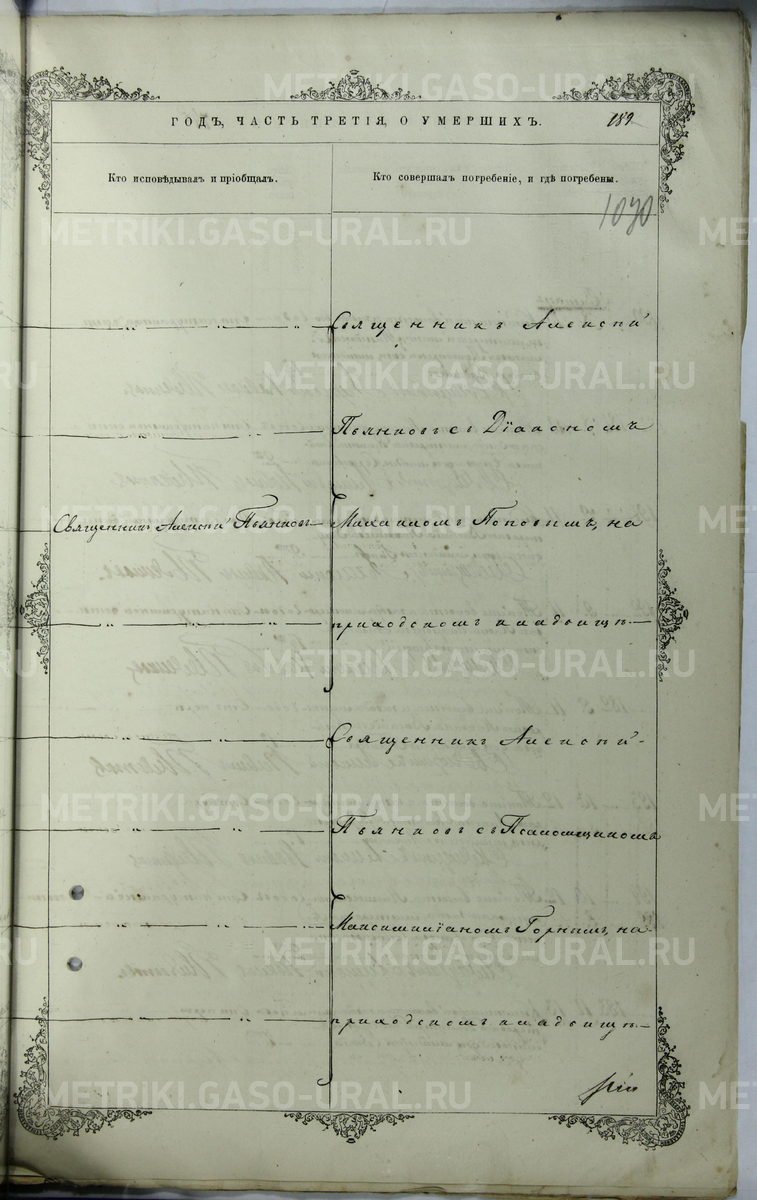 ГОДЪ, ЧАСТЬ ТРЕТІЯ, О УМЕРШИХЪ.
189
Кто исповѣдывалъ и пріобщалъ.
Кто совершалъ погребеніе, и гдѣ погребены.
1030
Священникъ Алексѣй
Пьянковъ съ Діакономъ
Священникъ Алексѣй Пьянковъ
Михаиломъ Поповымъ, на
приходскомъ кладбищѣ
Священникъ Алексѣй
Пьянковъ съ Псаломщикомъ
Максимиліаномъ Горнымъ, на
приходскомъ кладбищѣ
METRIKI.GASO-URAL.RU